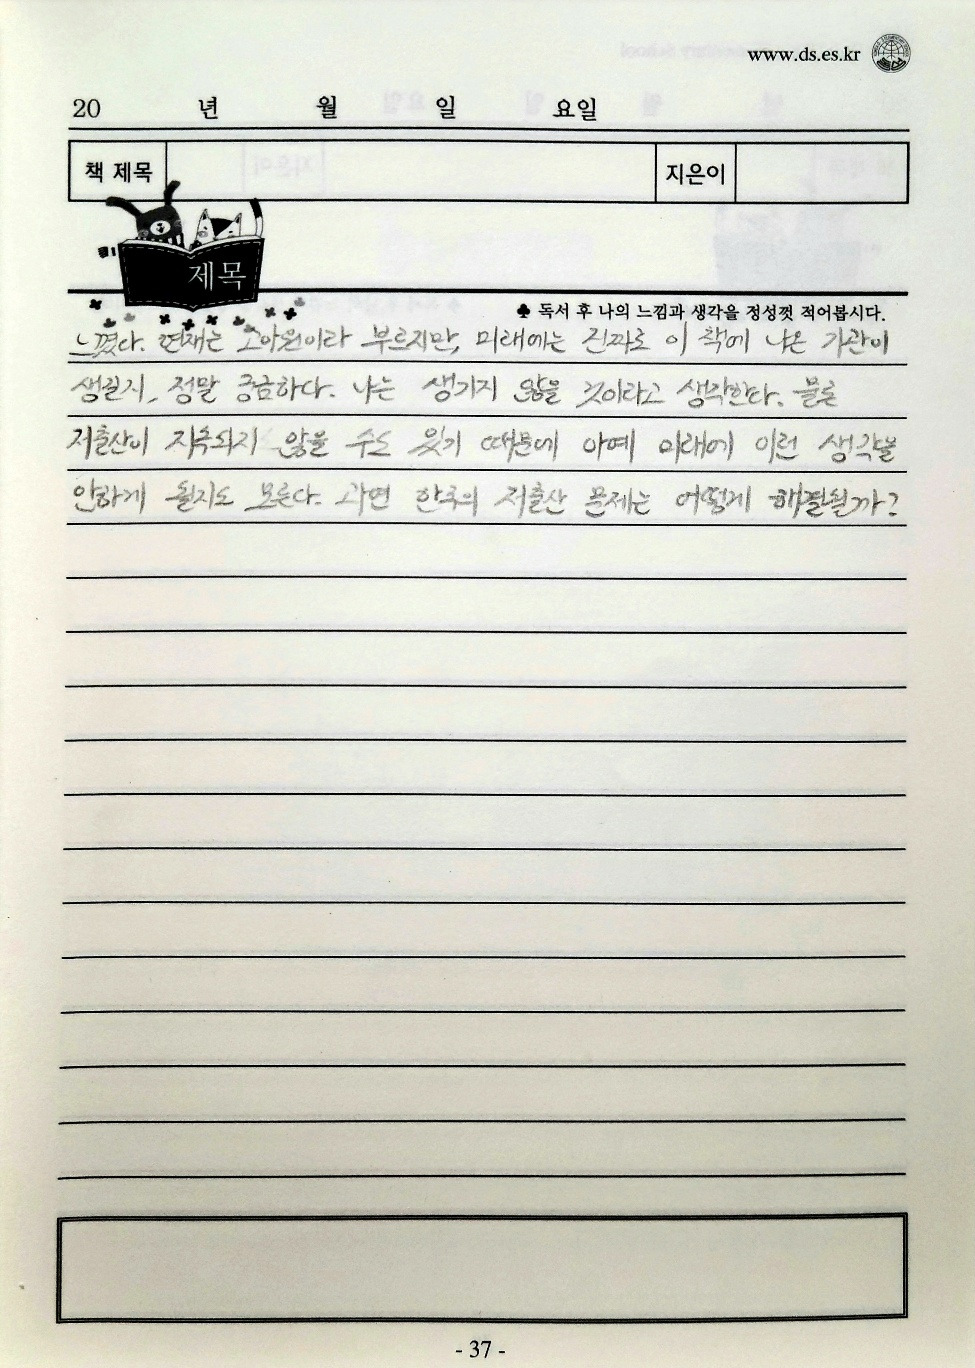 www.ds.es.kr
20 년 월 일 요일
책 제목 지은이
제목
♣ 독서 후 나의 느낌과 생각을 정성껏 적어봅시다.
느꼈다. 현재는 고아원이라 부르지만, 미래에는 진짜로 이 책에 나온 기관이
생길지, 정말 궁금하다. 나는 생기지 않을 것이라고 생각한다. 물론
저출산이 지속되지 않을 수도 있기 때문에 아예 미래에 이런 생각을
안하게 될지도 모른다. 과연 한국의 저출산 문제는 어떻게 해결될까?
- 37 -